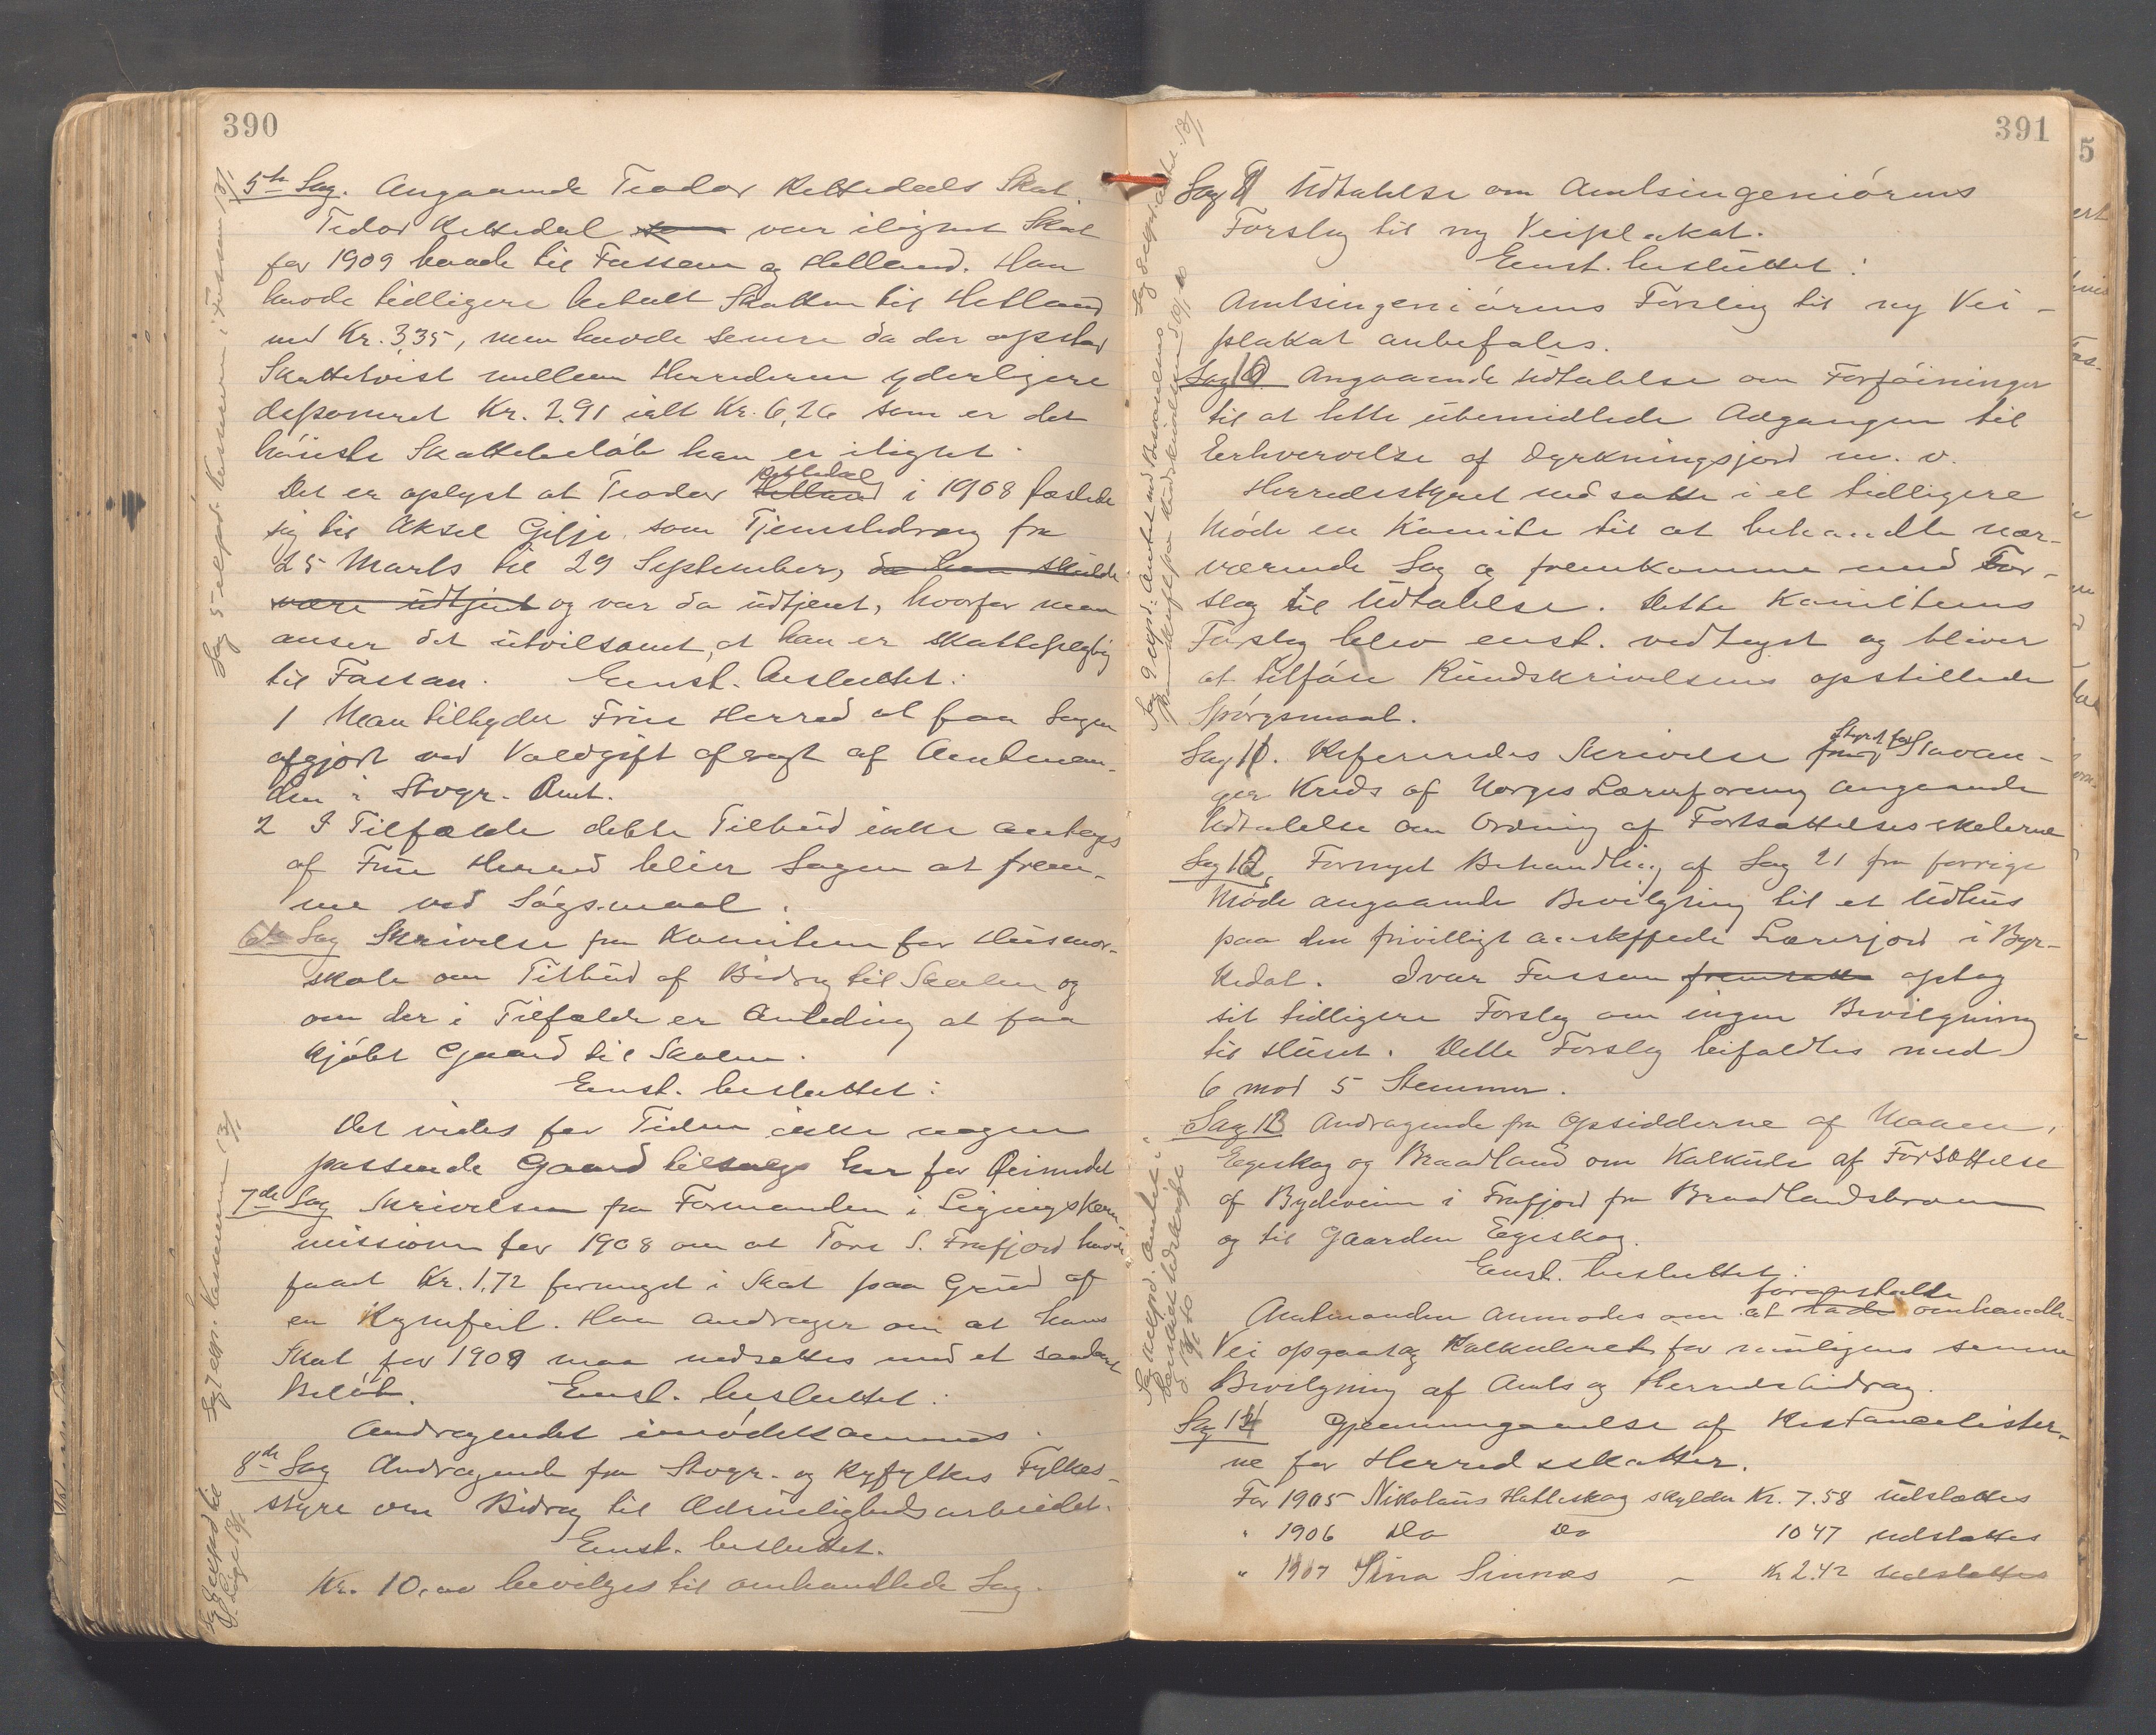 390
5te Sag. Angaaende Teodor Kettedals Skat.
Tedor Kettedal var ilignet Skat
for 1909 baade til Fossan og Helland. Han
havde tidligere betalt Skatten til Hetland
med Kr. 3,35, men havde senere da der opstod
Skattetvist mellem Herrederne yderligere
deponeret Kr. 2.91 ialt Kr. 6,26 som er det
høieste Skattebeløb han er ilignet.
Det er oplyst at Teodor Helland Kettedal i 1908 fæstede
sig til Aksel Gilje som Tjenestedreng fra
25 Marts til 29 September, da han skulde
være udtjent og var da udtjent, hvorfor man
anser det utvilsomt, at han er skattepligtig
til Fossan. Enst. besluttet:
1 Man tilbyder Frue Herred at faa Sagen
afgjort ved Voldgift afsagt af Amtman-
den i Stvgr. Amt.
2 I Tilfælde dette Tilbud ikke antages
af Frue Herred blier Sagen at frem-
me ved Søgsmaal.
6te Sag Skrivelse fra Komiteen for Husmor-
skole om Tilbud af Bidrag til Skolen og
om der i Tilfælde er Anledning at faa
kjøbt Gaard til Skolen.
Enst. besluttet:
Det vides for Tiden ikke nogen
passende Gaard tilsalgs her for Øiemedet
7de Sag Skrivelse fra Formanden i Ligningskom-
missionen for 1908 om at Tore S. Frafjord havde
faaet Kr. 1,72 formeget i Skat paa Grund af
en Regnefeil. Han andrager om at hans
Skat for 1909 maa nedsættes med et saadant
Beløb. Enst. besluttet:
Andragendet imødekommes.
8de Sag Andragende fra Stvgr. og Ryfylkes Fylkes-
styre om Bidrag til Ædrueligheds arbeidet.
Enst. besluttet.
Kr. 10,00 bevilges til omhandlede Sag.
Sag 5 exped. Kasseren i Fossan 13/1
Sag 7 exp. Kasseren 13/1
391
Sag 9 Udtalelse om Amtsingeniørens
Forslag til ny Veiplakat.
Enst. besluttet:
Amtsingeniørens Forslag til ny Vei-
plakat anbefales.
Sag 10 Angaaende Udtalelse om Forføininger
til at lette ubemidlede Adgangen til
Erhvervelse af Dyrkningsjord m. v.
Herredsstyret nedsatte i et tidligere
Møde en Komite til at behandle nær-
værende Sag og fremkomme med For-
slag til Udtalelse. Dette Komiteens
Forslag blev enst. vedtaget og bliver
at tilføie Rundskrivelsens opstillede
Spørgsmaal.
Sag 11. Refereredes Skrivelse fra Styret for Stavan-
ger Kreds af Norges Lærerforening angaaende
Udtalelse om Ordning af Fortsættelsesskolerne
Sag 12, Fornyet Behandling af Sag 21 fra forrige
Møde angaaende Bevilgning til et Udhus
paa den frivilligt anskaffede Lærerjord i Byr-
kedal. Ivar Fossan fremsatte optog
sit tidligere Forslag om ingen Bevilgning
til Huset. Dette Forslag bifaldtes med
6 mod 5 Stemmer.
Sag 13 Andragende fra Opsidderne af Maaen,
Egeskog og Braadland om Kalkule af Fortsættelse
af Bydeveien i Frafjord fra Braadlandsbroen
og til Gaarden Egeskog.
Enst. besluttet:
Amtmanden anmodes om at lade foranstalte omhandle-
Vei opgaaet og Kalkuleret for muligens senere
Bevilgning af Amts og Herredsbidrag.
Sag 14 Gjennemgaaelse af Restancelister-
ne for Herredsskatter.
For 1905 Nikolaus Hatleskog skylder Kr. 7.58 udslettes
" 1906 Do Do 10 47 udslettes
" 1907 Sina Sinnæs – Kr 2.42 udslettes
5